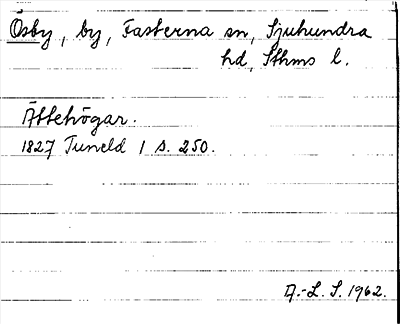 Ösby, by, Fasterna sn, Sjuhundra
hd, Sthms l.
Ättehögar.
1827 Tuneld 1 s. 250.
A.-L. S. 1962.